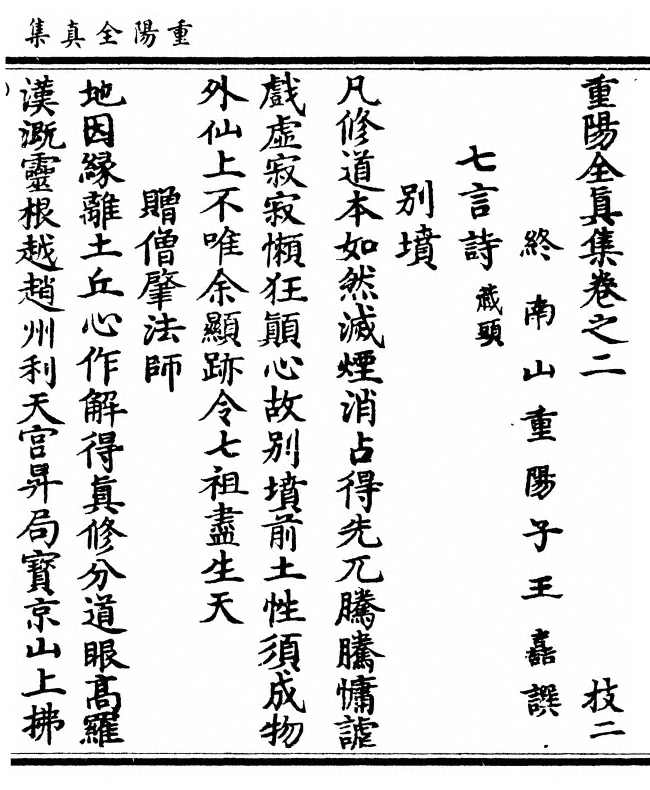 重陽全真集
重陽全眞集卷之二　枝二
終南山重陽子王嚞譔
七言詩藏頭
別墳
凡修道本如然滅煙消占得先兀騰騰慵謔
戲虛寂寂懶狂顚心故別墳前土性須成物
外仙上不唯余顯跡令七祖盡生天
贈僧肇法師
地因緣離土丘心作解得眞修分道眼高羅
漢漑靈根越趙州利天宮昇局寳京山上拂